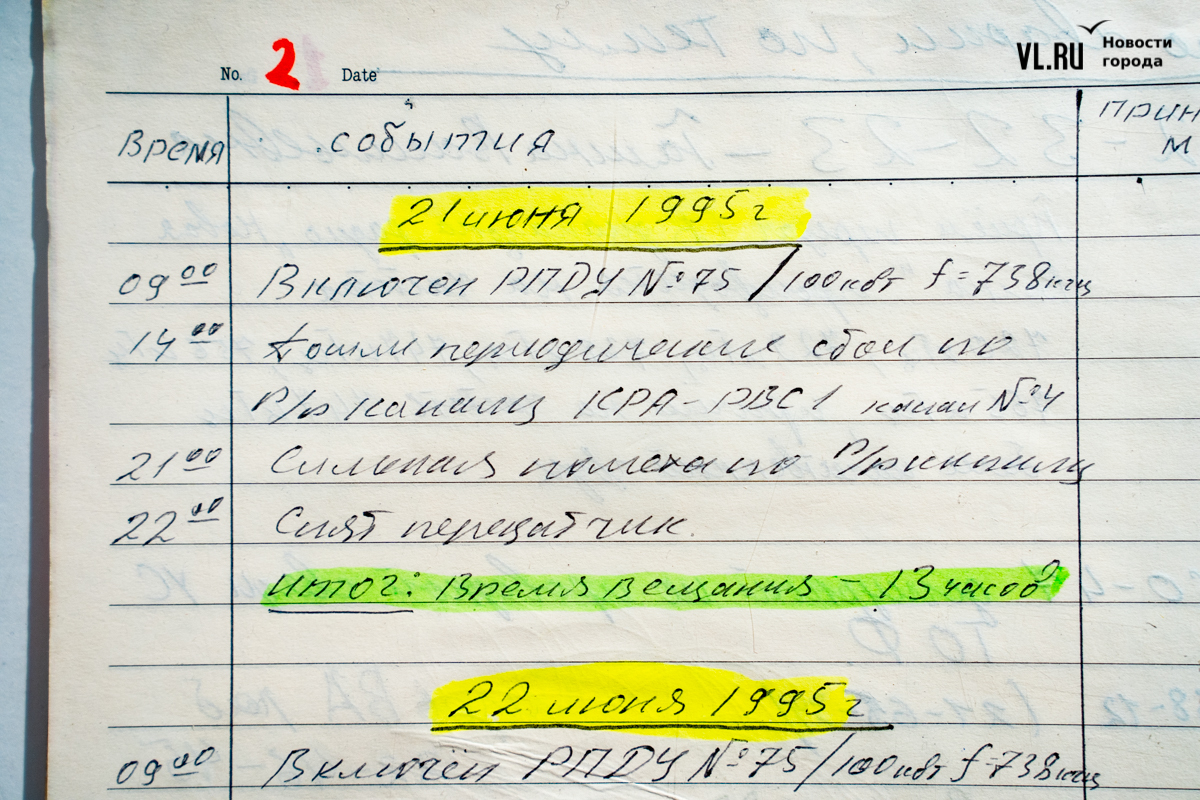 VL.RU Новости
города
No. 2 Date
Время события прин
м
21 июня 1995г
09 00 Включен РПДУ №75 / 100квт f=738кгц
14 00 Пошли периодические сбои по
р/р каналу КРА-РВС1 канал №4
21 00 Сильная помеха по р/рканалу
22 00 Снят передатчик.
итог: Время вещания - 13 часов
22 июня 1995г
09 00 Включён РПДУ №75/100квт f=738кгц